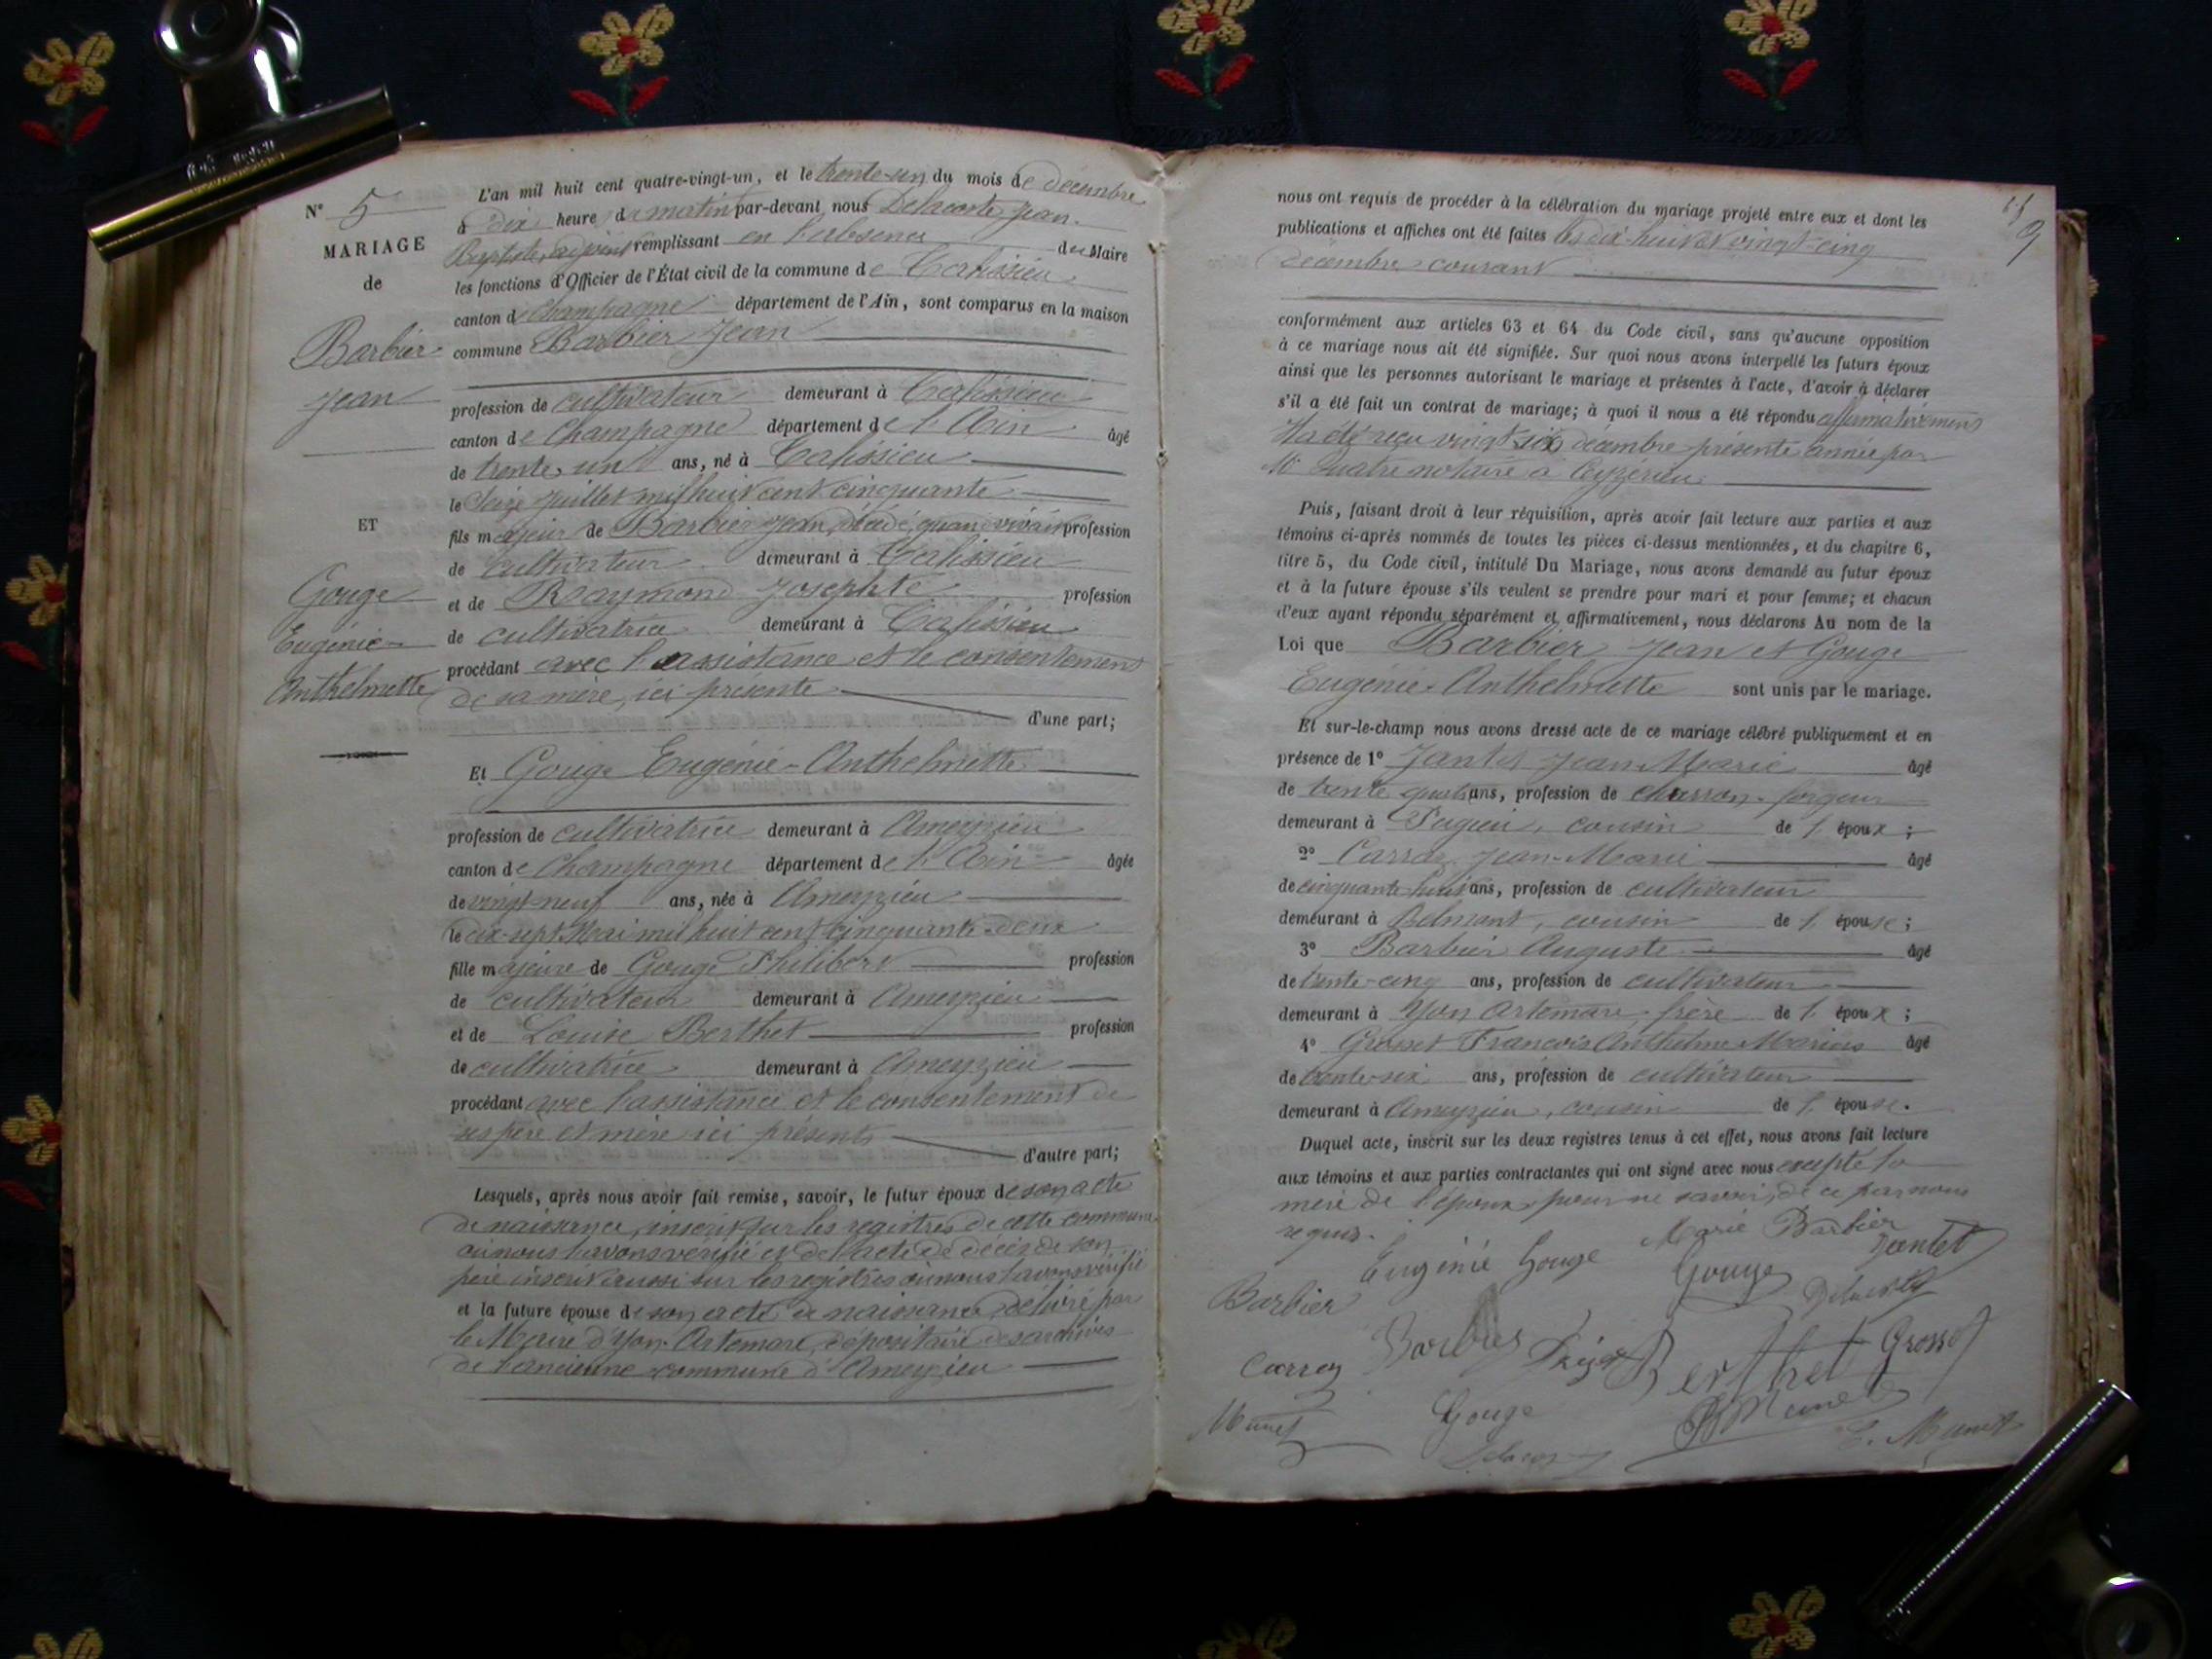 N° 5
MARIAGE
de
Barbier
Jean
ET
Gouge
Eugénie
Anthelmette
L'an mil huit cent quatre-vingt-un, et le trente-un du mois de décembre
à dix heure du matin par-devant nous Delacoste Jean-
Baptiste, adjoint remplissant en l'absence du Maire
les fonctions d'Officier de l'État civil de la commune de Talissieu
canton de Champagne département de l'Ain, sont comparus en la maison
commune Barbier Jean
profession de cultivateur demeurant à Talissieu
canton de Champagne département de l'Ain âgé
de trente-un ans, né à Talissieu
le seize Juillet mil huit cent cinquante
fils majeur de Barbier Jean, décédé, quand vivait profession
de cultivateur demeurant à Talissieu
et de Raymond Josephte profession
de cultivatrice demeurant à Talissieu
procédant avec l'assistance et le consentement
de sa mère, ici présente d'une part;
Et Gouge Eugénie-Anthelmette
profession de cultivatrice demeurant à Ameyzieu
canton de Champagne département de l'Ain âgée
de vingt-neuf ans, née à Ameyzieu
le dix-sept Mai mil huit cent cinquante-deux
fille majeure de Gouge Philibert profession
de cultivateur demeurant à Ameyzieu
et de Louise Berthet profession
de cultivatrice demeurant à Ameyzieu
procédant avec l'assistance et le consentement de
ses père et mère ici présents d'autre part;
Lesquels, après nous avoir fait remise, savoir, le futur époux de son acte
de naissance, inscrit sur les registres de cette commune
où nous l'avons vérifié et de l'acte de décès de son
père inscrit aussi sur les registres où nous l'avons vérifié
et la future épouse de son acte de naissance délivré par
le Maire d'Yon-Artemare, dépositaire des archives
de l'ancienne commune d'Ameyzieu
9
nous ont requis de procéder à la célébration du mariage projeté entre eux et dont les
publications et affiches ont été faites les dix-huit et vingt-cinq
décembre courant
conformément aux articles 63 et 64 du Code civil, sans qu'aucune opposition
à ce mariage nous ait été signifiée. Sur quoi nous avons interpellé les futurs époux
ainsi que les personnes autorisant le mariage et présentes à l'acte, d'avoir à déclarer
s'il a été fait un contrat de mariage; à quoi il nous a été répondu affirmativement
Il a été reçu vingt-six décembre présente année par
Mr Quatre notaire à Ceyzerieu
Puis, faisant droit à leur réquisition, après avoir fait lecture aux parties et aux
témoins ci-après nommés de toutes les pièces ci-dessus mentionnées, et du chapitre 6,
titre 5, du Code civil, intitulé Du Mariage, nous avons demandé au futur époux
et à la future épouse s'ils veulent se prendre pour mari et pour femme; et chacun
d'eux ayant répondu séparément et affirmativement, nous déclarons Au nom de la
Loi que Barbier Jean et Gouge
Eugénie-Anthelmette sont unis par le mariage.
Et sur-le-champ nous avons dressé acte de ce mariage célébré publiquement et en
présence de 1° Jantet Jean-Marie âgé
de trente quatre ans, profession de charron-forgeur
demeurant à Pugieu, cousin de l'époux;
2° Carraz Jean-Marie âgé
de cinquante-huit ans, profession de cultivateur
demeurant à Belmont, cousin de l'épouse;
3° Barbier Auguste âgé
de trente-cinq ans, profession de cultivateur
demeurant à Yon Artemare frère de l'époux;
4° Grosset François Anthelme Marius âgé
de trente-six ans, profession de cultivateur
demeurant à Ameyzieu, cousin de l'épouse.
Duquel acte, inscrit sur les deux registres tenus à cet effet, nous avons fait lecture
aux témoins et aux parties contractantes qui ont signé avec nous excepté la
mère de l'époux pour ne savoir, de ce par nous
requis.
Marie Barbier
Eugénie Gouge Gouge Jantet
Barbier
Barbier Berthet Grosset
Carraz
Gouge
Munet